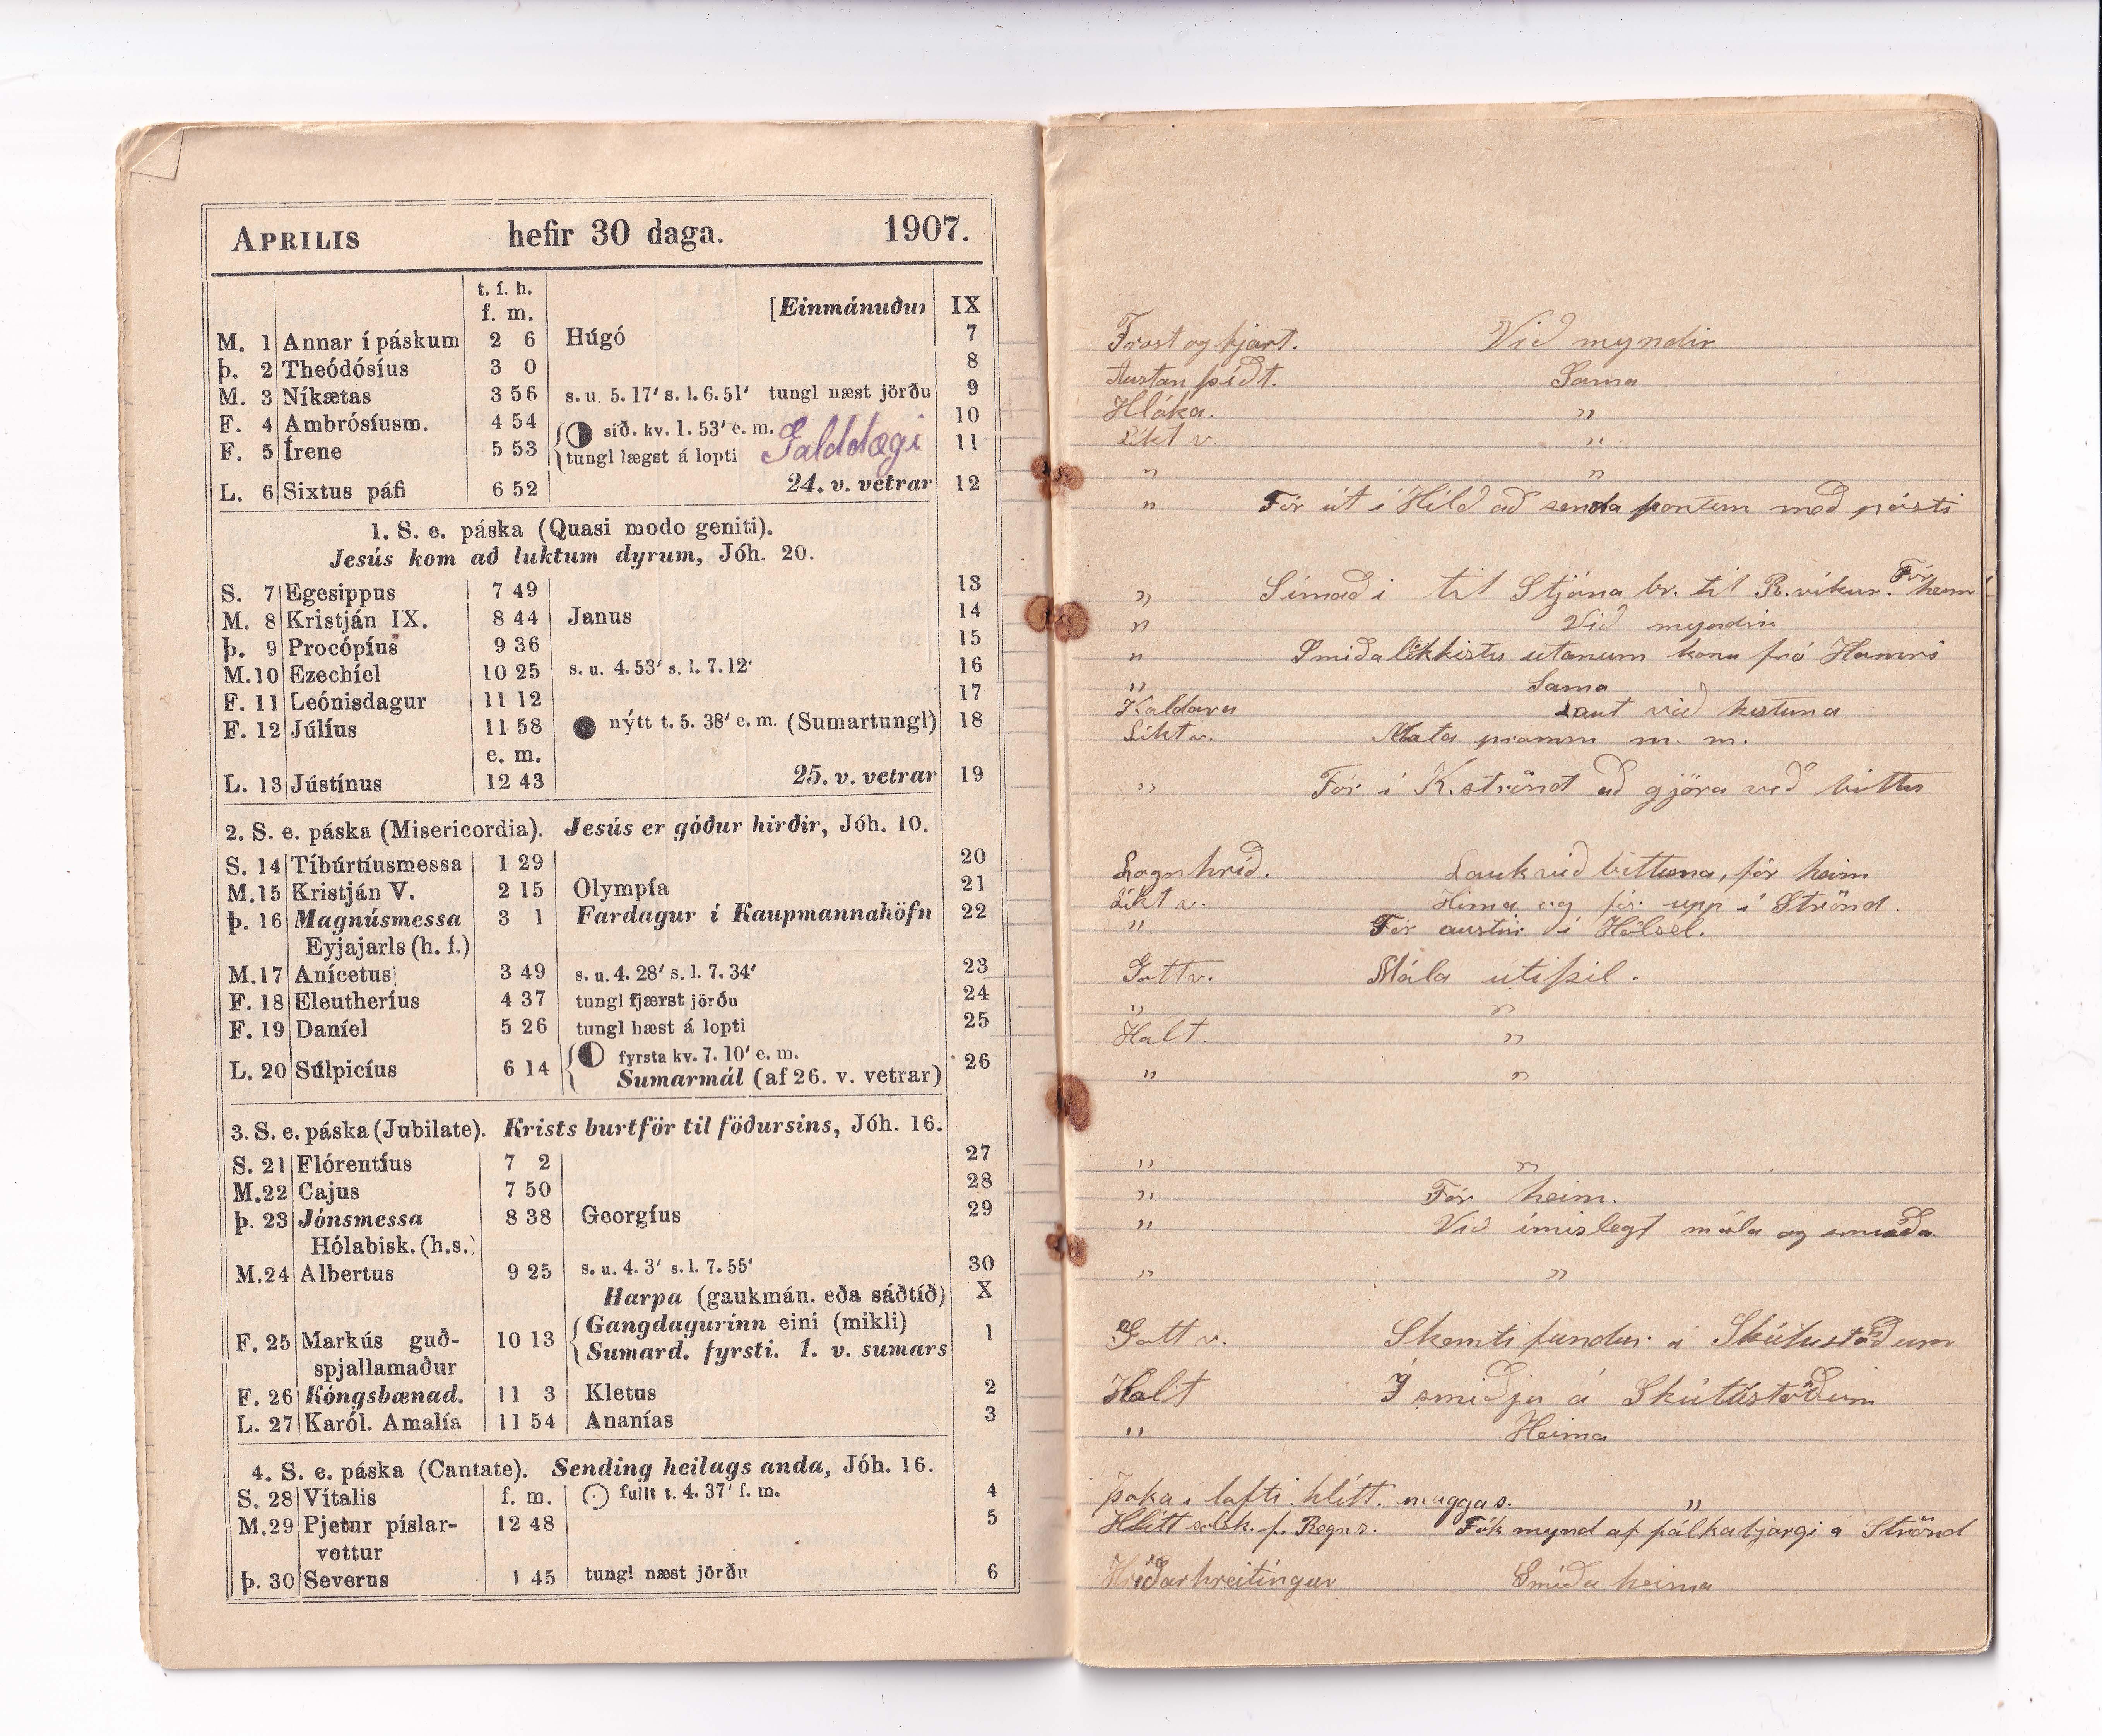 APRILIS hefir 30 daga. 1907.
t. í. h.
f. m. [Einmánuður IX
M. 1 Annar í páskum 2 6 Húgó 7
Þ. 2 Theódósíus 3 0 8
M. 3 Níkætas 3 56 s. u. 5. 17' s. l. 6. 51' tungl næst jörðu 9
F. 4 Ambrósíusm. 4 54 síð. kv. 1. 53' e. m. 10
F. 5 Írene 5 53 tungl lægst á lopti Galddægi 11
L. 6 Sixtus páfi 6 52 24. v. vetrar 12
1. S. e. páska (Quasi modo geniti).
Jesús kom að luktum dyrum, Jóh. 20.
S. 7 Egesippus 7 49 13
M. 8 Kristján IX. 8 44 Janus 14
Þ. 9 Procópíus 9 36 15
M. 10 Ezechíel 10 25 s. u. 4. 53' s. l. 7. 12' 16
F. 11 Leónisdagur 11 12 17
F. 12 Júlíus 11 58 nýtt t. 5. 38' e. m. (Sumartungl) 18
e. m.
L. 13 Jústínus 12 43 25. v. vetrar 19
2. S. e. páska (Misericordia). Jesús er góður hirðir, Jóh. 10.
S. 14 Tíbúrtíusmessa 1 29 20
M. 15 Kristján V. 2 15 Olympía 21
Þ. 16 Magnúsmessa 3 1 Fardagur í Kaupmannahöfn 22
Eyjajarls (h. f.)
M. 17 Anícetus 3 49 s. u. 4. 28' s. l. 7. 34' 23
F. 18 Eleutheríus 4 37 tungl fjærst jörðu 24
F. 19 Daníel 5 26 tungl hæst á lopti 25
L. 20 Súlpicíus 6 14 fyrsta kv. 7. 10' e. m. 26
Sumarmál (af 26. v. vetrar)
3. S. e. páska (Jubilate). Krists burtför til föðursins, Jóh. 16.
S. 21 Flórentíus 7 2 27
M. 22 Cajus 7 50 28
Þ. 23 Jónsmessa 8 38 Georgíus 29
Hólabisk. (h. s.)
M. 24 Albertus 9 25 s. u. 4. 3' s. l. 7. 55' 30
Harpa (gaukmán. eða sáðtíð) X
Gangdagurinn eini (mikli)
F. 25 Markús guð- 10 13 Sumard. fyrsti. 1. v. sumars 1
spjallamaður
F. 26 Kóngsbænad. 11 3 Kletus 2
L. 27 Karól. Amalía 11 54 Ananías 3
4. S. e. páska (Cantate). Sending heilags anda, Jóh. 16.
S. 28 Vítalis f. m. fullt t. 4. 37' f. m. 4
M. 29 Pjetur píslar- 12 48 5
vottur
Þ. 30 Severus 1 45 tungl næst jörðu 6
Frost og bjart. Við myndir
Austan þíðt. Sama
Hláka. "
Líkt v. "
" "
" Fór út í Hlíð að senda pontun með pósti
" Símaði til Stjána br. til R.víkur. Fór heim
" Við myndir
" Smíða líkkistu utanum konu frá Hamri
" Sama
Kaldara Laut við kistuna
Líkt v. Mata pramm m. m.
" Fór í K.strönd að gjöra við bittu
Lognhríð. Lauk við bittuna, fór heim
Líkt v. Hima og fór upp í Strönd.
" Fór austur í Hólsel.
Gott v. Mála útiþil.
" "
Kalt. "
" "
" "
" Fór heim.
" Við ímislegt mála og smíða
" "
Gott v. Skemtifundur á Skútustöðum
Kalt Í smiðju á Skútustöðum
" Heima
Þoka í lofti. hlítt. muggas. "
Hlítt f. Regns. Tók mynd af fálkabjargi á Strönd
Hríðarhreitingur Smíða heima